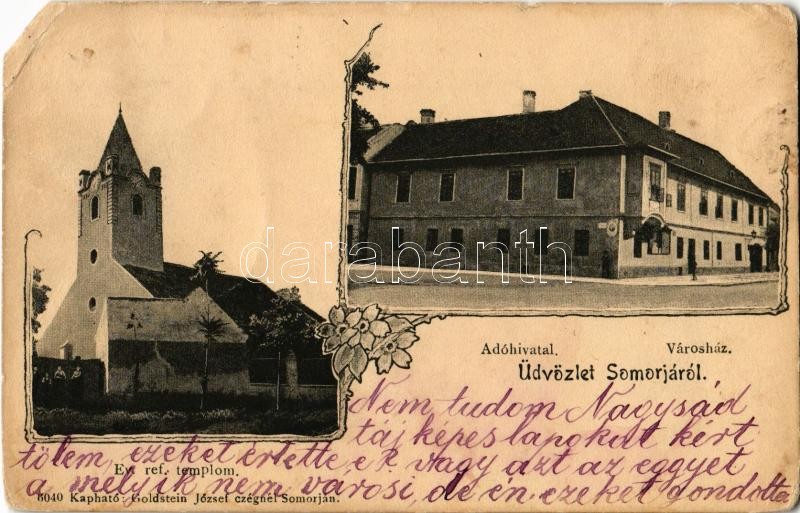 darabanth
Adóhivatal.
Városház.
Üdvözlet Somorjáról.
Nem tudom Nagysád
tájképes lapokat kért
tőlem, ezeket értette, e? vagy azt az eggyet
Ev. ref. templom.
a melyik nem városi, de én ezeket gondolta
6040 Kapható: Goldstein József czégnél Somorján.